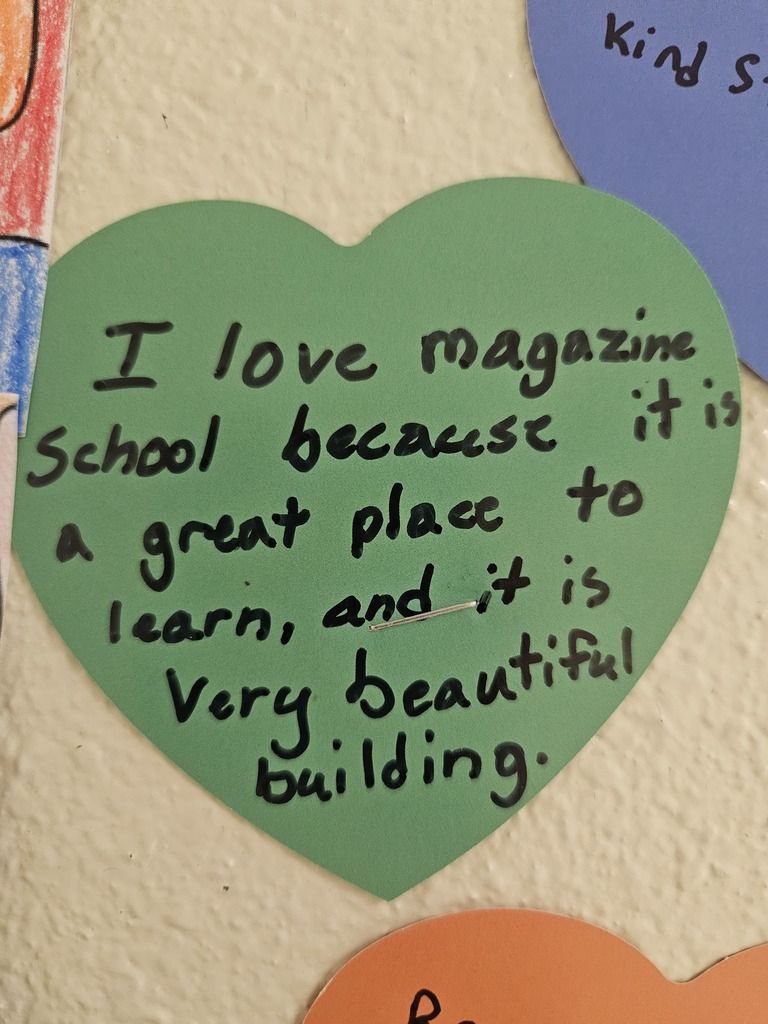 Kind
I love magazine
School because it is
a great place to
learn, and it is
Very beautiful
building.